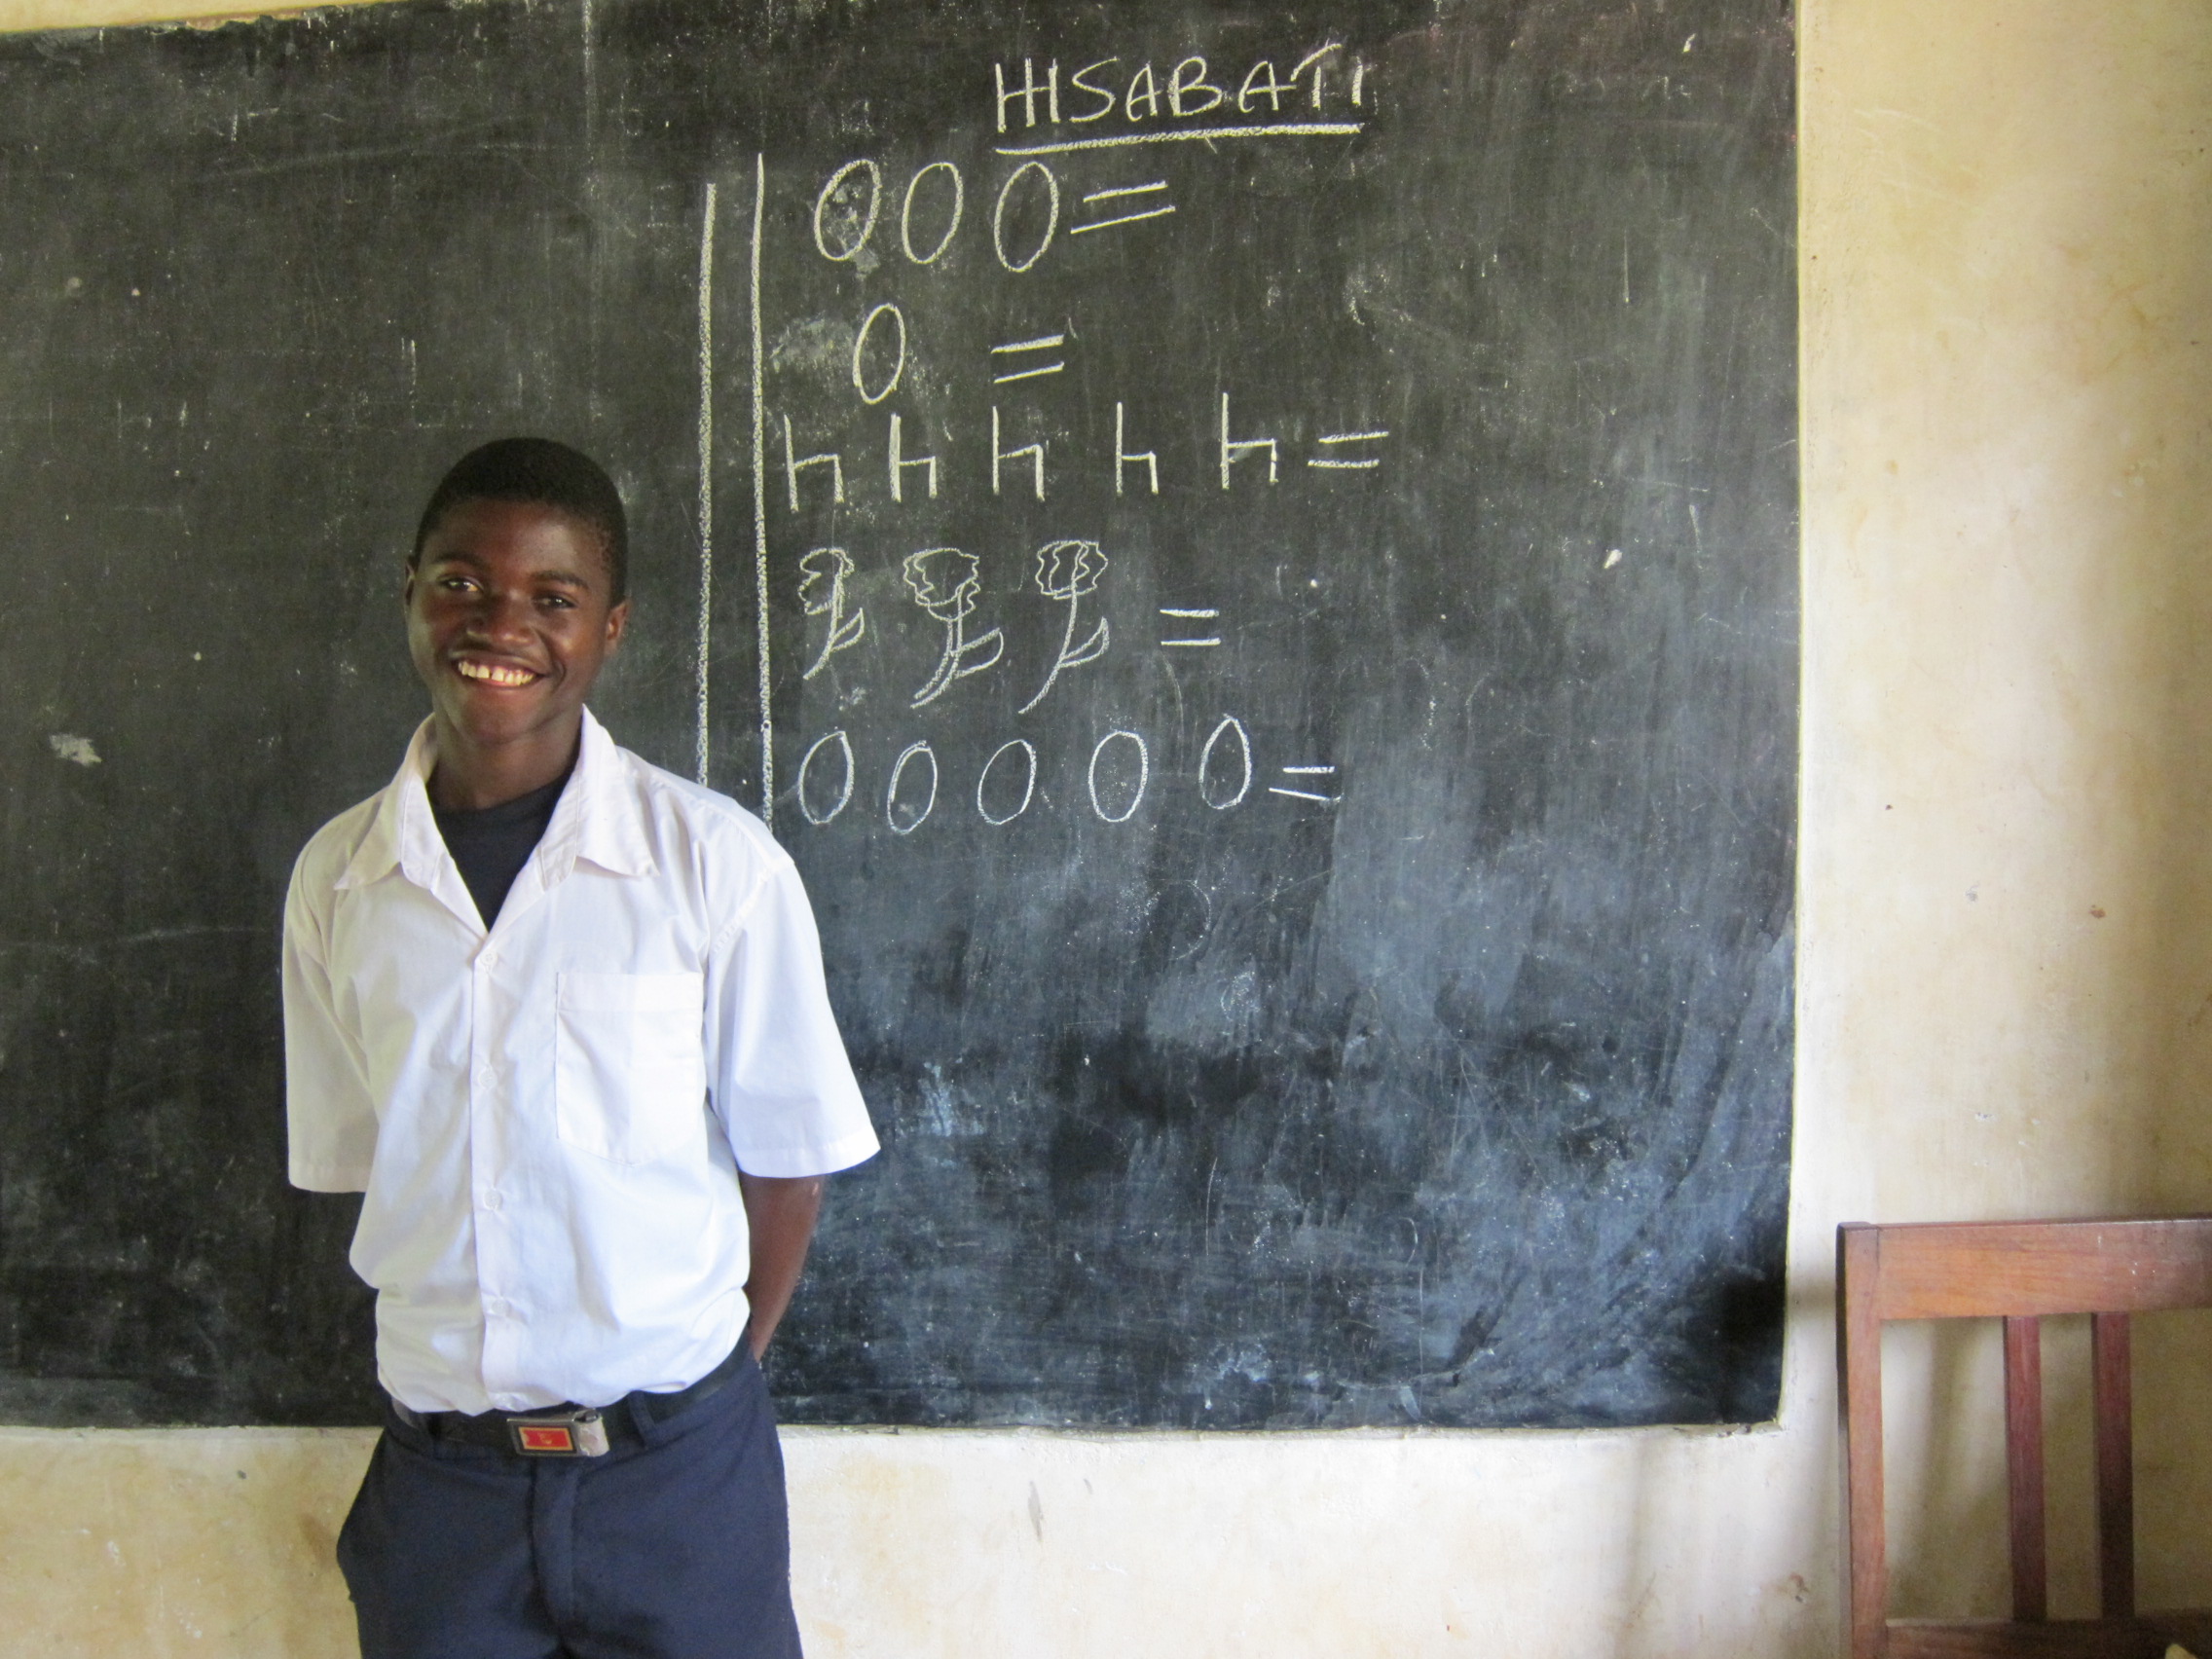 HISABATI
0 0 0 =
0 =
h h h h h =
=
0 0 0 0 0 =